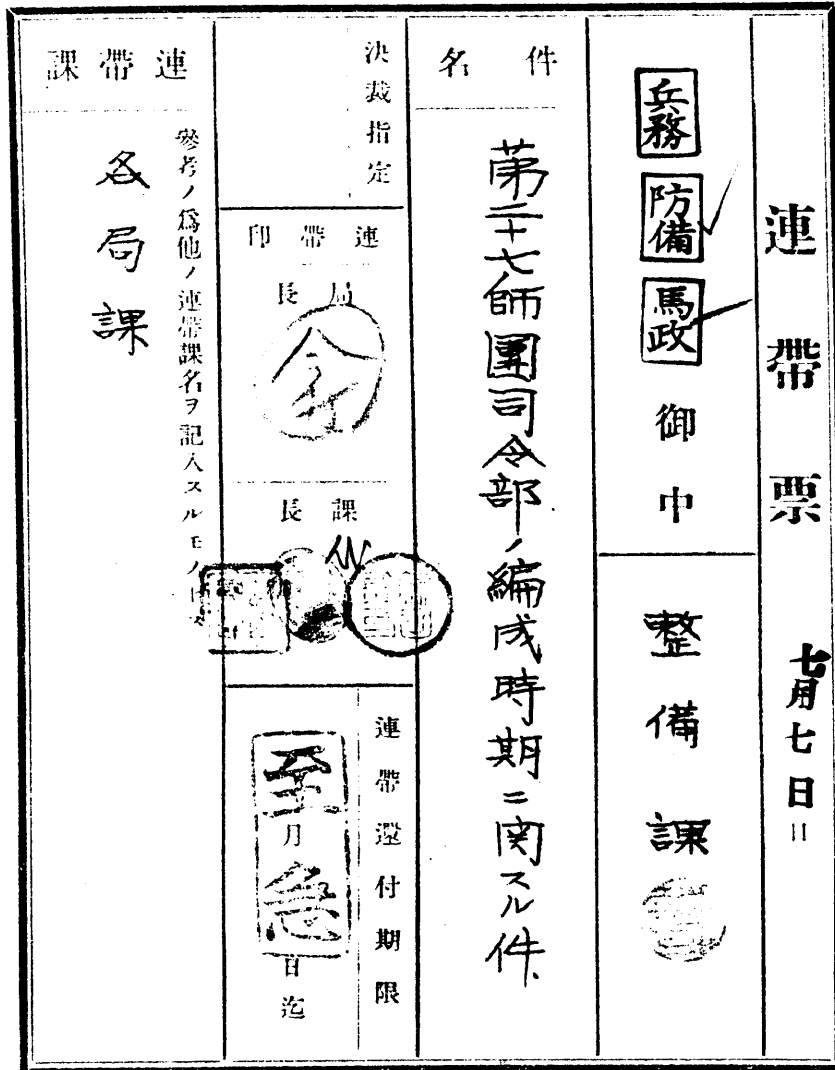 連帶票
七月七日
日
兵務 防備 馬政 御中
整備課
件名
第二十七師團司令部ノ編成時期ニ関スル件
決裁指定
連帶印
局長
課長
連帶還付期限
至急
月 日迄
連帶課
參考ノ爲他ノ連帶課名ヲ記入スルモノトス
各局課